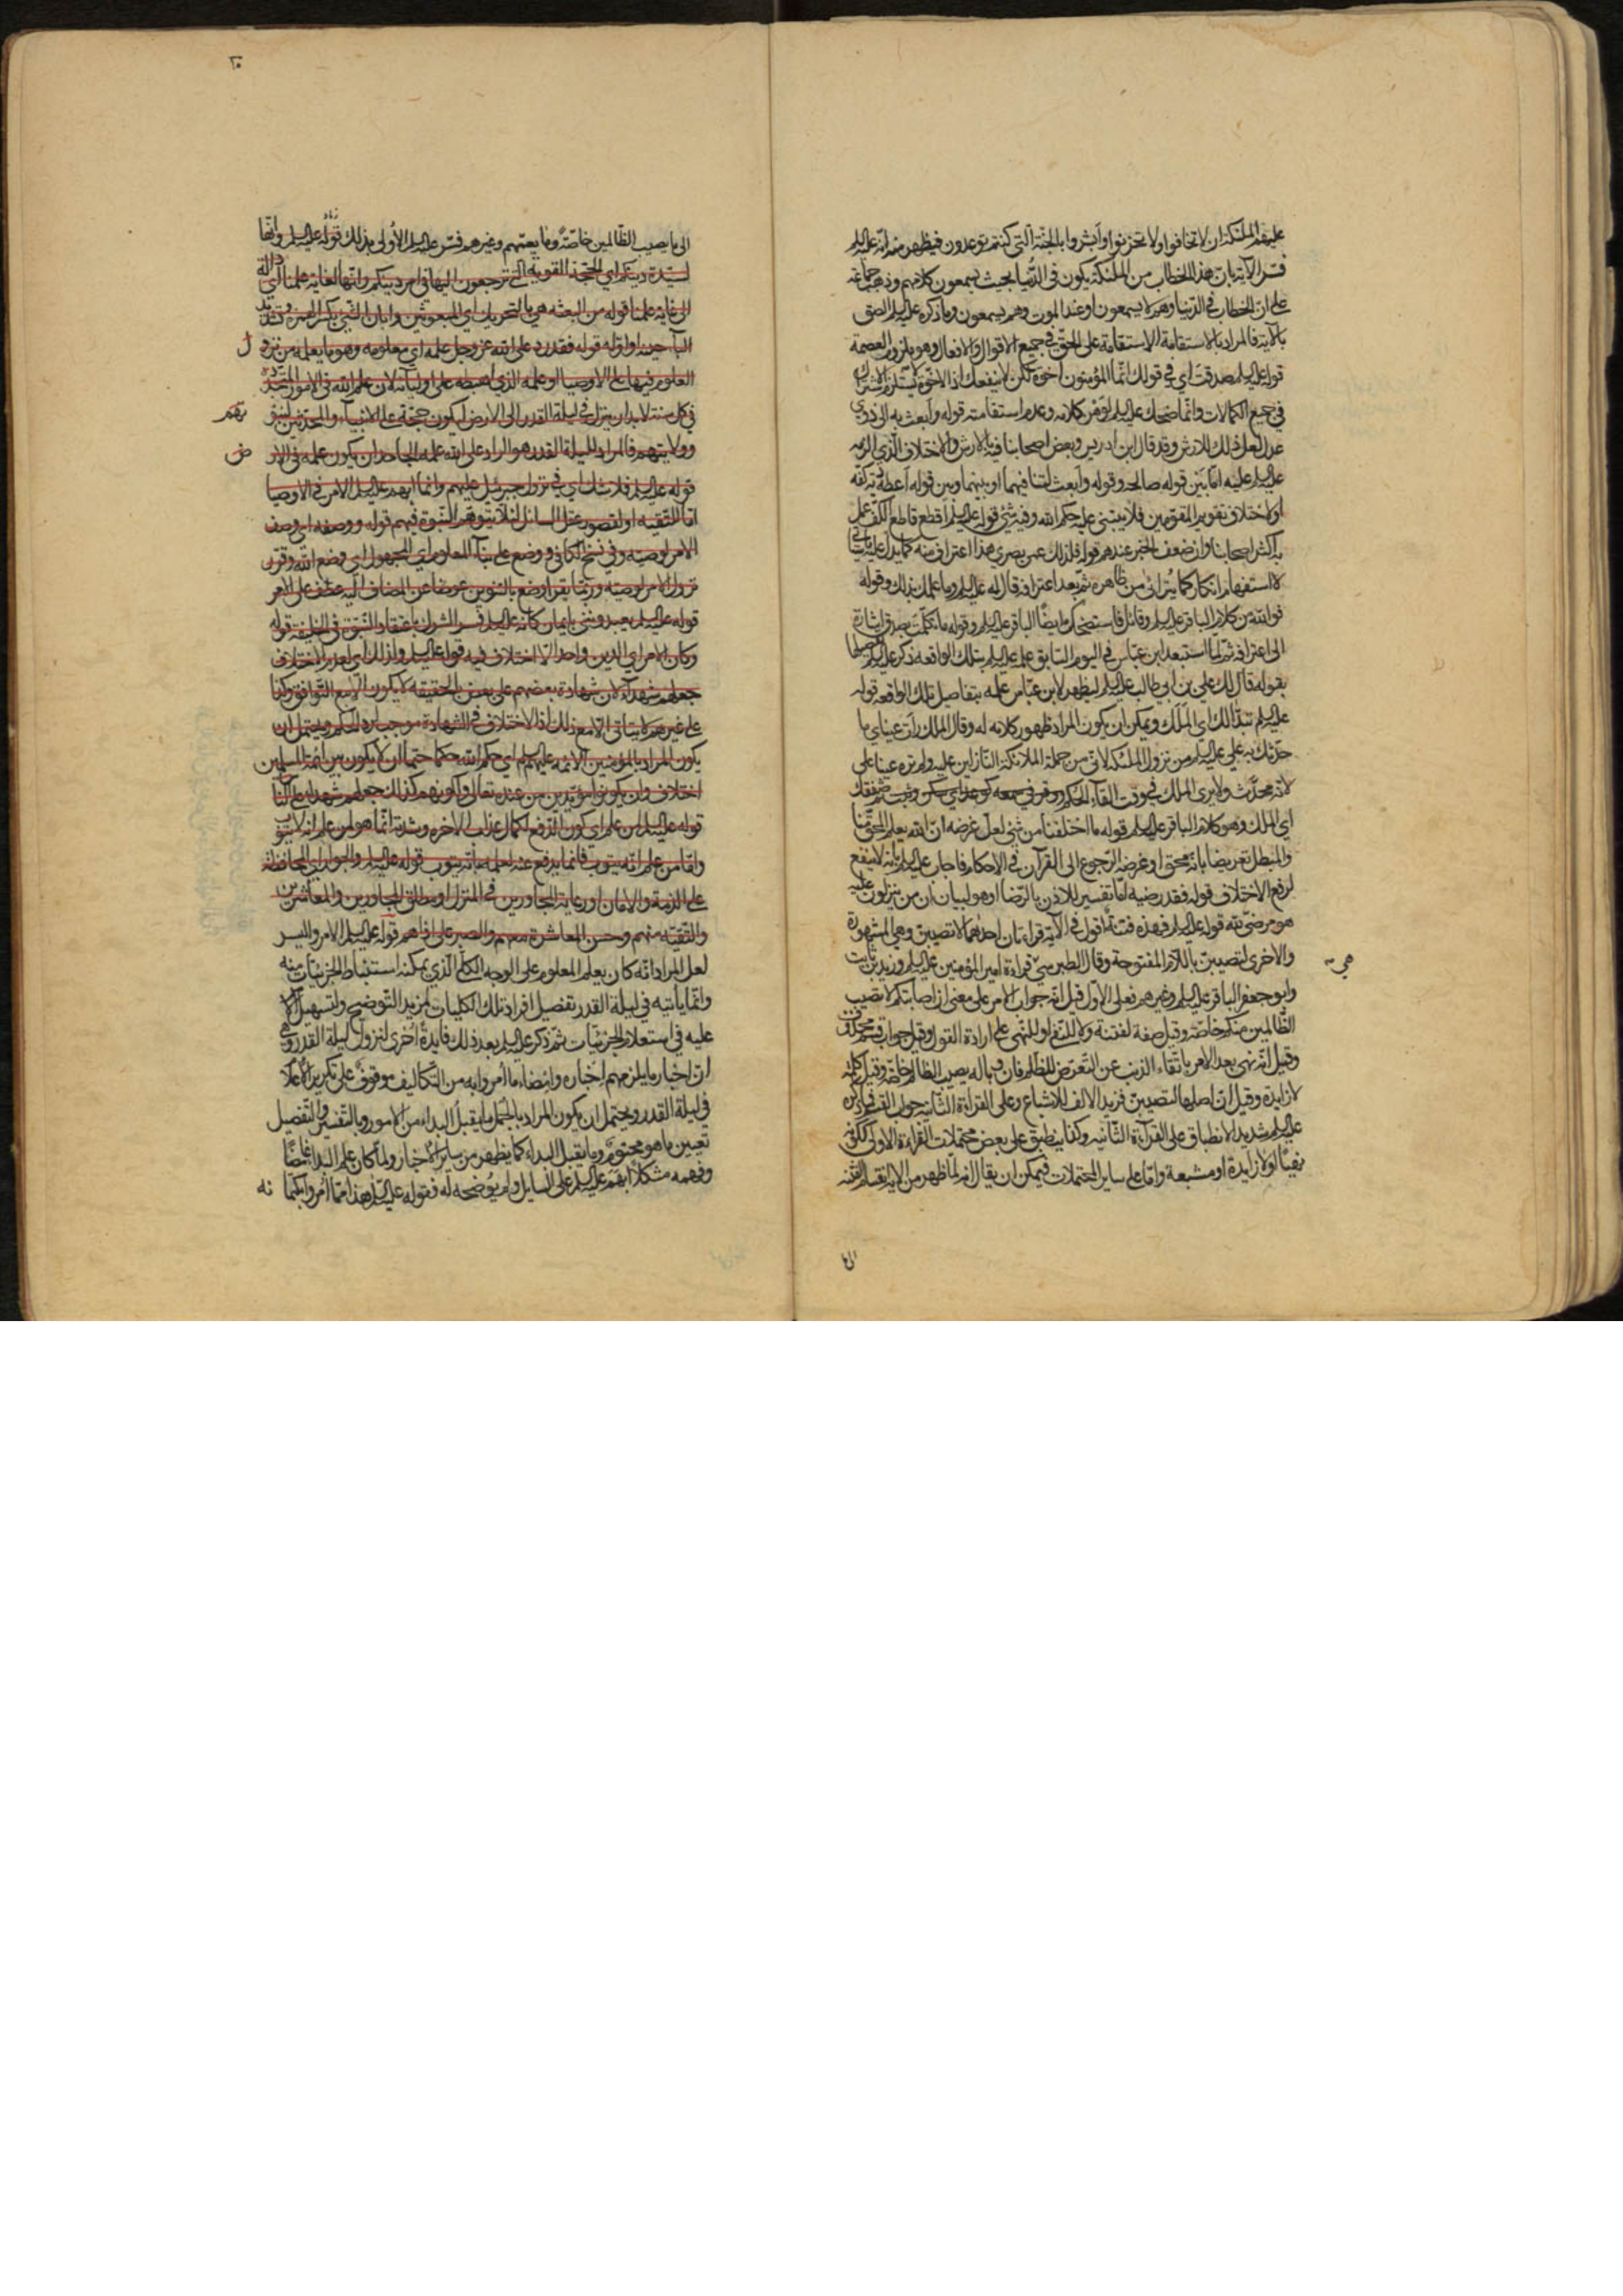 عليهم الملئكة ان لا تخافوا ولا تحزنوا وابشروا بالجنة التي كنتم توعدون فيظهر منه انه عليلم
فسر الآية بان هذا الخطاب من الملئكة يكون في الدنيا بحيث يسمعون كلامهم وذهب جماعة
على ان الخطاب في الدنيا وهم لا يسمعون او عند الموت وهم يسمعون وما ذكره عليلم الصق
بالآية فالمراد بالاستقامة الاستقامة على الحق في جميع الاقوال والافعال وهو يلزوم العصمة
قوله عليلم صدقت اي في قولك انما المؤمنون اخوة لكن لا ينفعك اذ الاخوة لا يستلزم الاشتراك
في جميع الكمالات وانما ضحك عليلم لوهن كلامه وعدم استقامته قوله وابعث به الى ذوي
عدل لعل ذلك للارش وقد قال ابن ادريس وبعض اصحابنا فيه بالارش والاختلاف الذي الزمه
عليلم عليه اما بين قوله صالحه وقوله وابعث لتنافيهما او بينهما وبين قوله اعطه دية كفه
او لاختلاف تقويم المقومين فلا يبتني عليه حكم الله وفيه شئ قوله عليلم اقطع قاطع الكف عمل
به اكثر اصحابنا وان ضعف الخبر عندهم قوله فلذلك عمي بصري هذا اعتراف منه كما يدل عليه ما ياتي
لا استفهام انكار كما يتراءى من ظاهره ثم بعد اعترافه قال له عليلم وما علمك بذلك وقوله
فوالله من كلام الباقر عليلم وقائل فاستضحكت ايضا الباقر عليلم وقوله ما تكلمت بصدق اشارة
الى اعترافه ثم لما استبعد ابن عباس في اليوم السابق علمه عليلم بتلك الواقعة ذكر عليلم تفصيلها
بقوله قال لك علي بن ابي طالب عليلم ليظهر لابن عباس علمه بتفاصيل تلك الواقعة قوله
عليلم تبدا لك اي الملك ويمكن ان يكون المراد ظهور كلامه له وقال الملك رأت عيناي ما
حدثك به علي عليلم من نزول الملئكة لاني من جملة الملائكة النازلين عليه ولم تره عينا علي
لانه محدث ولا يرى الملك في وقت القاء الحكم ووقر في سمعه كوعد اي سكن وثبت ثم صفقك
اي الملك وهو كلام الباقر عليلم قوله ما اختلفنا من شئ لعل غرضه ان الله يعلم المحق منا
والمبطل تعريضا بانه محق او غرضه الرجوع الى القرآن في الاحكام فاجاب عليلم بانه لا ينفع
لرفع الاختلاف قوله فقد رضيه لها تفسير للاذن بالرضا او هو لبيان ان من ينزلون عليه
هو مرضي لله قوله عليلم فهذه فتنة اقول في الآية قراءتان احدهما لا تصيبن وهي المشهورة
والاخرى لتصيبن باللام المفتوحة وقال الطبرسي قراءة امير المؤمنين عليلم وزيد بن ثابت
وابو جعفر الباقر عليلم وغيرهم فعلى الاول قيل انه جواب الامر على معنى ان اصابتكم لا تصيب
الظالمين منكم خاصة وقيل صفة لفتنة ولا للنفي او للنهي على ارادة القول وقيل جواب قسم محذوف
وقيل انه نهي بعد الامر باتقاء الذنب عن التعرض للظلم فان وباله يصيب الظالم خاصة وقيل كلمة
لا زايدة وقيل ان اصلها لتصيبن فزيد الالف للاشباع وعلى القراءة الثانية جواب القسم فما ذكره
عليلم شديد الانطباق على القرآءة الثانيه وكذا ينطبق على بعض محتملات القراءة الاولى ككونه
نهيا او لا زايدة او مشبعة واما على ساير المحتملات فيمكن ان يقال انه لما ظهر من الاية انقسام الفتنه
هي
الى
٢٠
الى ما يصيب الظالمين خاصة وما يعمهم وغيرهم فسر عليلم الأولى بذلك قوله عليلم وانها
لسيدة دينكم اي الحجة القوية التي ترجعون اليها في امر دينكم وانها لغاية علمنا اي دالة
الى غاية علمنا قوله من البعثة هي بالتحريك اي المبعوثين وابان الشئ بكسر الهمزة وتشديد
البآ حينه او اوله قوله فقد رد على الله عز وجل علمه اي معلومه وهو ما يعلمه من نزول
العلوم فيها على الاوصيا او علمه الذي اهبطه على اوليائه لان علم الله في الامور المتجددة
في كل سنة لابد ان ينزل في ليلة القدر الى الارض ليكون حجة على الانبيآء والمحدثين لنبوتهم
وولايتهم فالراد لليلة القدر هو الراد على الله علمه الجاحد ان يكون علمه في الارض
قوله عليلم فلا شك اي في نزول جبرئيل عليهم وانما ابهم عليلم الامر في الاوصيا
اما للتقية او لقصور عقل السائل لئلا يتوهم النبوة فيهم قوله ووصفه اي وصف
الامر لوصيه وفي نسخ الكافي ووضع على بنآء المعلوم او المجهول اي وضع الله وقرر
نزول الامر لوصيه وربما يقرأ وضع بالتنوين عوضا عن المضاف اليه عطف على الامر
قوله عليلم يعبدونني بايمان كانه عليلم فسر الشرك باعتقاد النبوة في الخليفة قوله
وكان الامر اي الدين واحدا لا اختلاف فيه قوله عليلم ولذلك اي لعدم الاختلاف
جعلهم شهدآء لان شهادة بعضهم على بعض بالحقيقه لا يكون الا مع التوافق وكذا
على غيرهم لا يتاتى الا مع ذلك اذ الاختلاف في الشهادة موجب لرد الحكم ويحتمل ان
يكون المراد بالمؤمنين الائمه عليهم اي حكم الله حكما حتما ان لا يكون بين ائمة المسلمين
اختلاف وان يكونوا مؤيدين من عنده تعالى ولكونهم كذلك جعلهم شهداء على الناس
قوله عليلم لمن علم اي كون الدفع لكمال عذاب الاخره وشدته انما هو لمن علم انه لا يتوب
واما من علم انه يتوب فانما يدفع عنه لعلمه بانه يتوب قوله عليلم والجوار اي المحافظة
على الذمة والامان او رعاية المجاورين في المنزل او مطلق المجاورين والمعاشرين
والتقية منهم وحسن المعاشرة معهم والصبر على اذاهم قوله عليلم الامر واليسر
لعل المراد انه كان يعلم المعلوم على الوجه الكلي الذي يمكنه استنباط الجزئيات منه
وانما ياتيه في ليلة القدر تفصيل افراد تلك الكليات لمزيد التوضيح ولتسهيل الامر
عليه في استعلام الجزئيات ثم ذكر عليلم بعد ذلك فايدة أخرى لنزول ليلة القدر وهي
ان اخبار ما يلزمهم اخباره وامضاء ما أمروا به من التكاليف موقوف على تكرير الاعلام
في ليلة القدر ويحتمل ان يكون المراد بالجمل ما يقبل البداء من الامور وبالتفسير والتفصيل
تعيين ما هو محتوم وما يقبل البداء كما يظهر من ساير الاخبار ولما كان علم البداء غامضا
وفهمه مشكلا ابهم عليلم على السايل ولم يوضحه له فقوله عليلم هذا مما أمروا بكتمانه